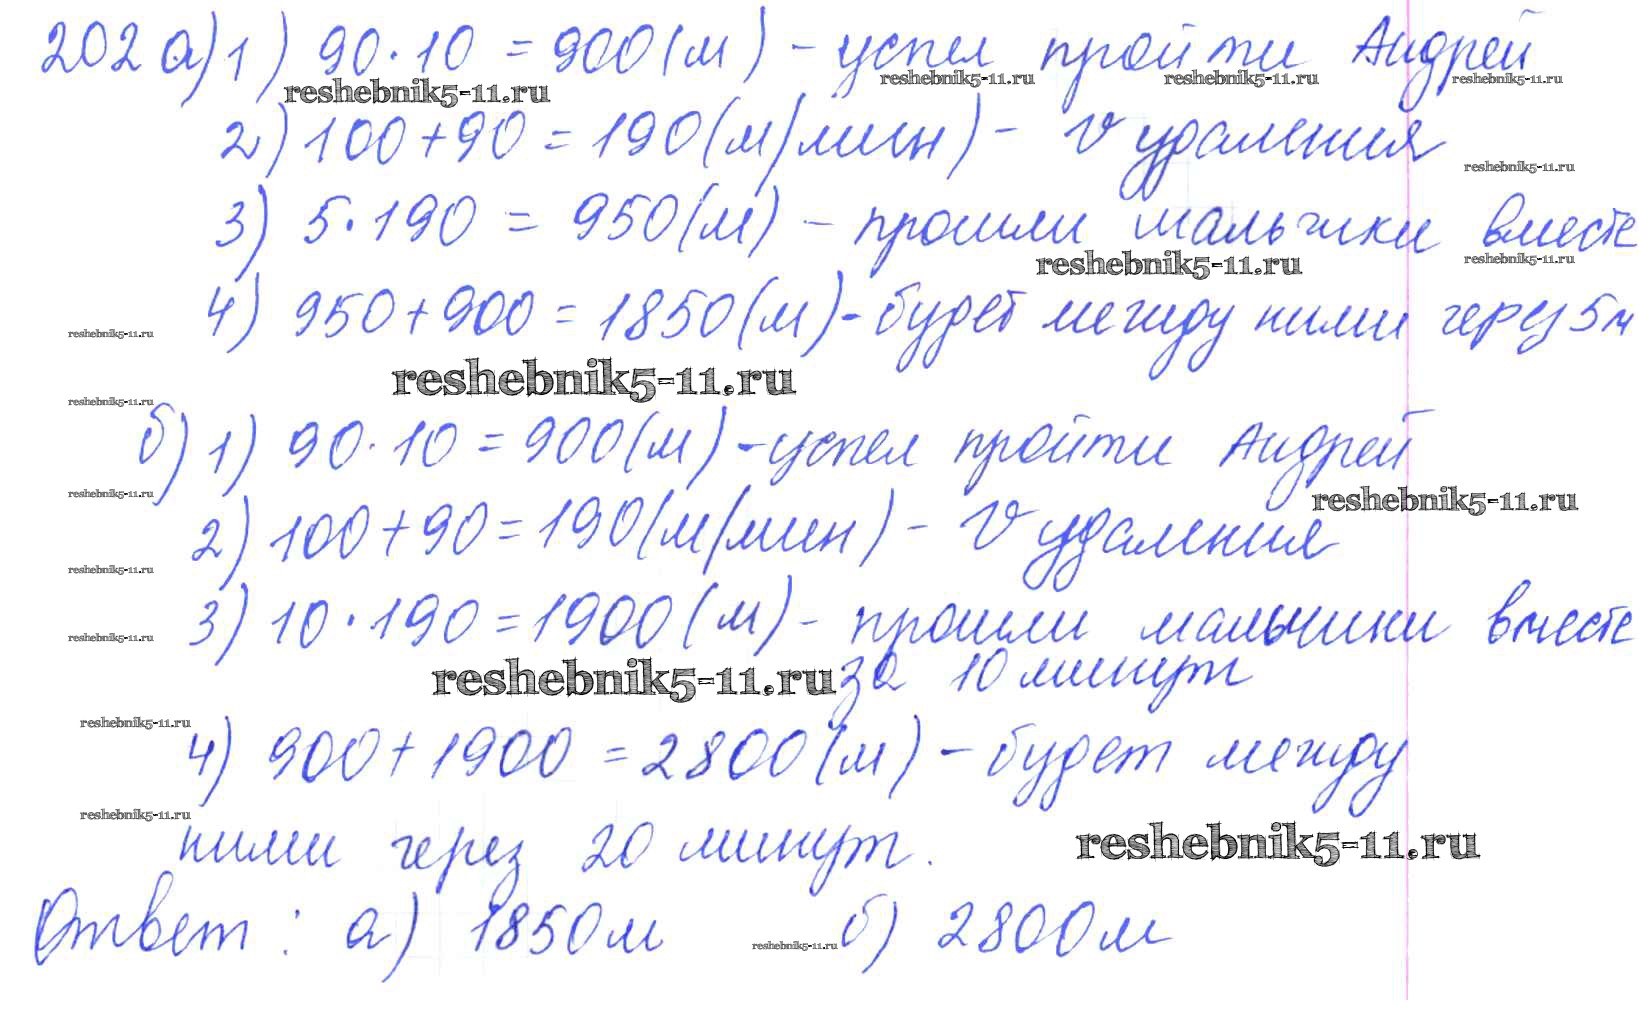 202 а) 1) 90·10 = 900 (м) – успел пройти Андрей
reshebnik5-11.ru reshebnik5-11.ru reshebnik5-11.ru reshebnik5-11.ru
2) 100+90 = 190 (м/мин) – V удаления
reshebnik5-11.ru
3) 5·190 = 950 (м) – прошли мальчики вместе
reshebnik5-11.ru reshebnik5-11.ru
4) 950+900 = 1850 (м) – будет между ними через 5 м
reshebnik5-11.ru
reshebnik5-11.ru
reshebnik5-11.ru
б) 1) 90·10 = 900 (м) – успел пройти Андрей
reshebnik5-11.ru reshebnik5-11.ru
2) 100+90 = 190 (м/мин) – V удаления
reshebnik5-11.ru
3) 10·190 = 1900 (м) – прошли мальчики вместе
reshebnik5-11.ru
reshebnik5-11.ru за 10 минут
reshebnik5-11.ru
4) 900+1900 = 2800 (м) – будет между
reshebnik5-11.ru
ними через 20 минут.
reshebnik5-11.ru
Ответ: а) 1850 м б) 2800 м
reshebnik5-11.ru